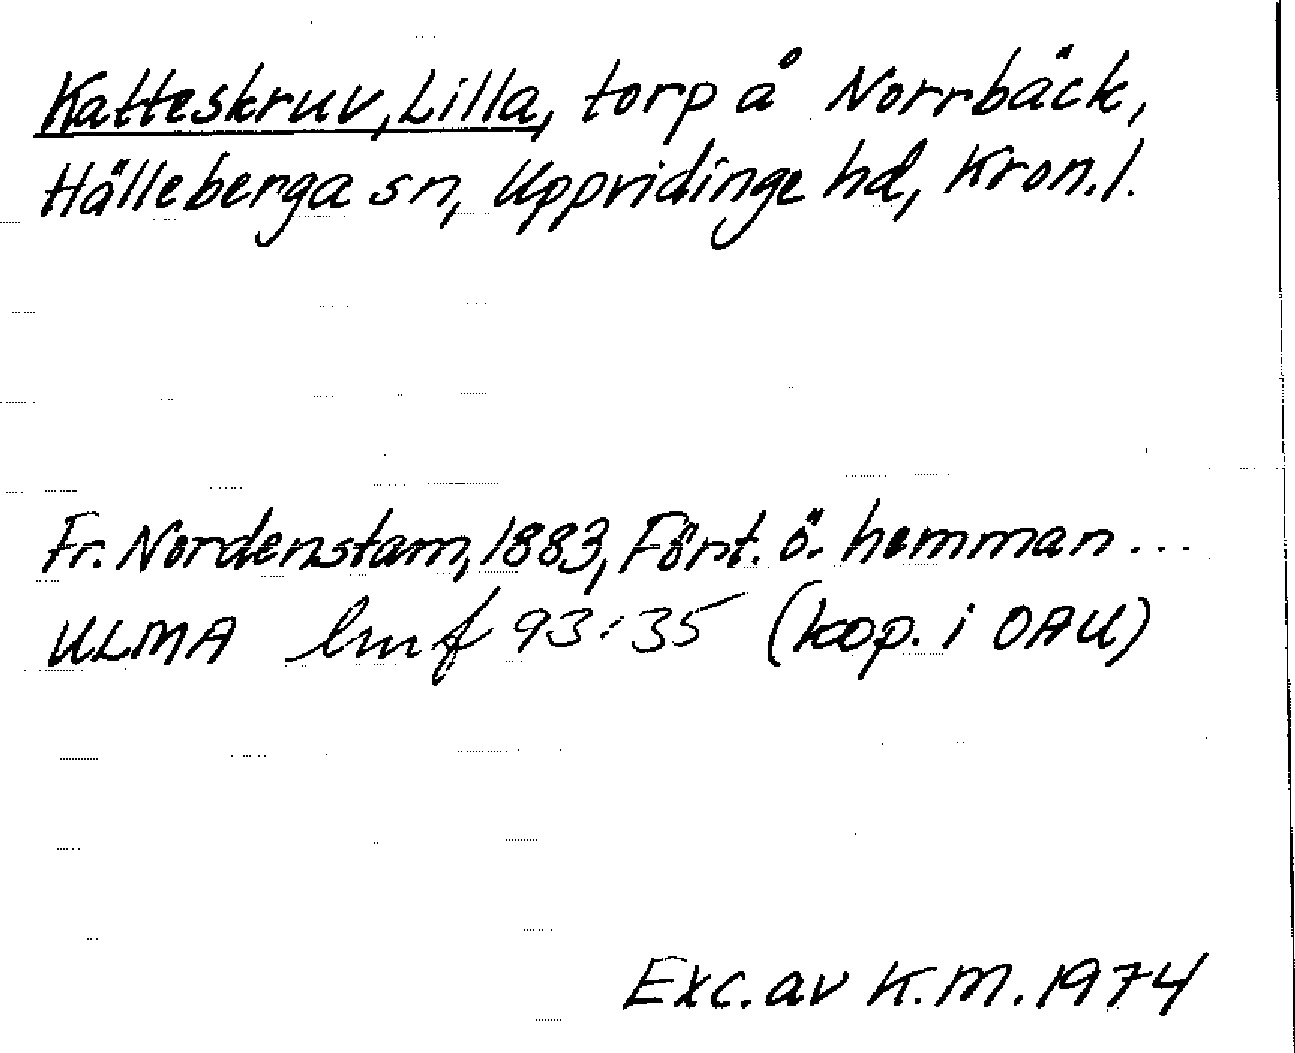 Katteskruv, Lilla, torp å Norrbäck,
Hälleberga sn, Uppvidinge hd, Kron.l.
Fr. Nordenstam, 1883, Fört. ö. hemman...
ULMA lmf 93:35 (kop. i OAU)
Exc. av K.M. 1974